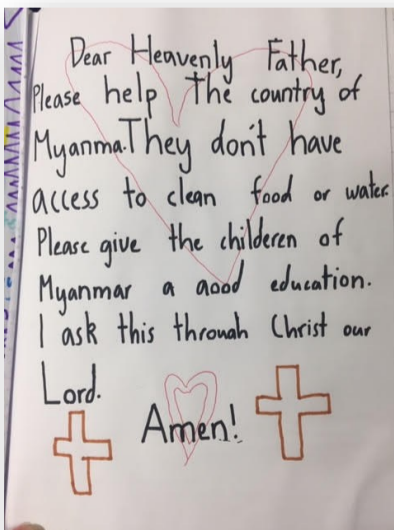 Dear Heavenly Father,
Please help the country of
Myanma.They don't have
access to clean food or water.
Please give the childeren of
Myanmar a good education.
I ask this through Christ our
Lord.
Amen!